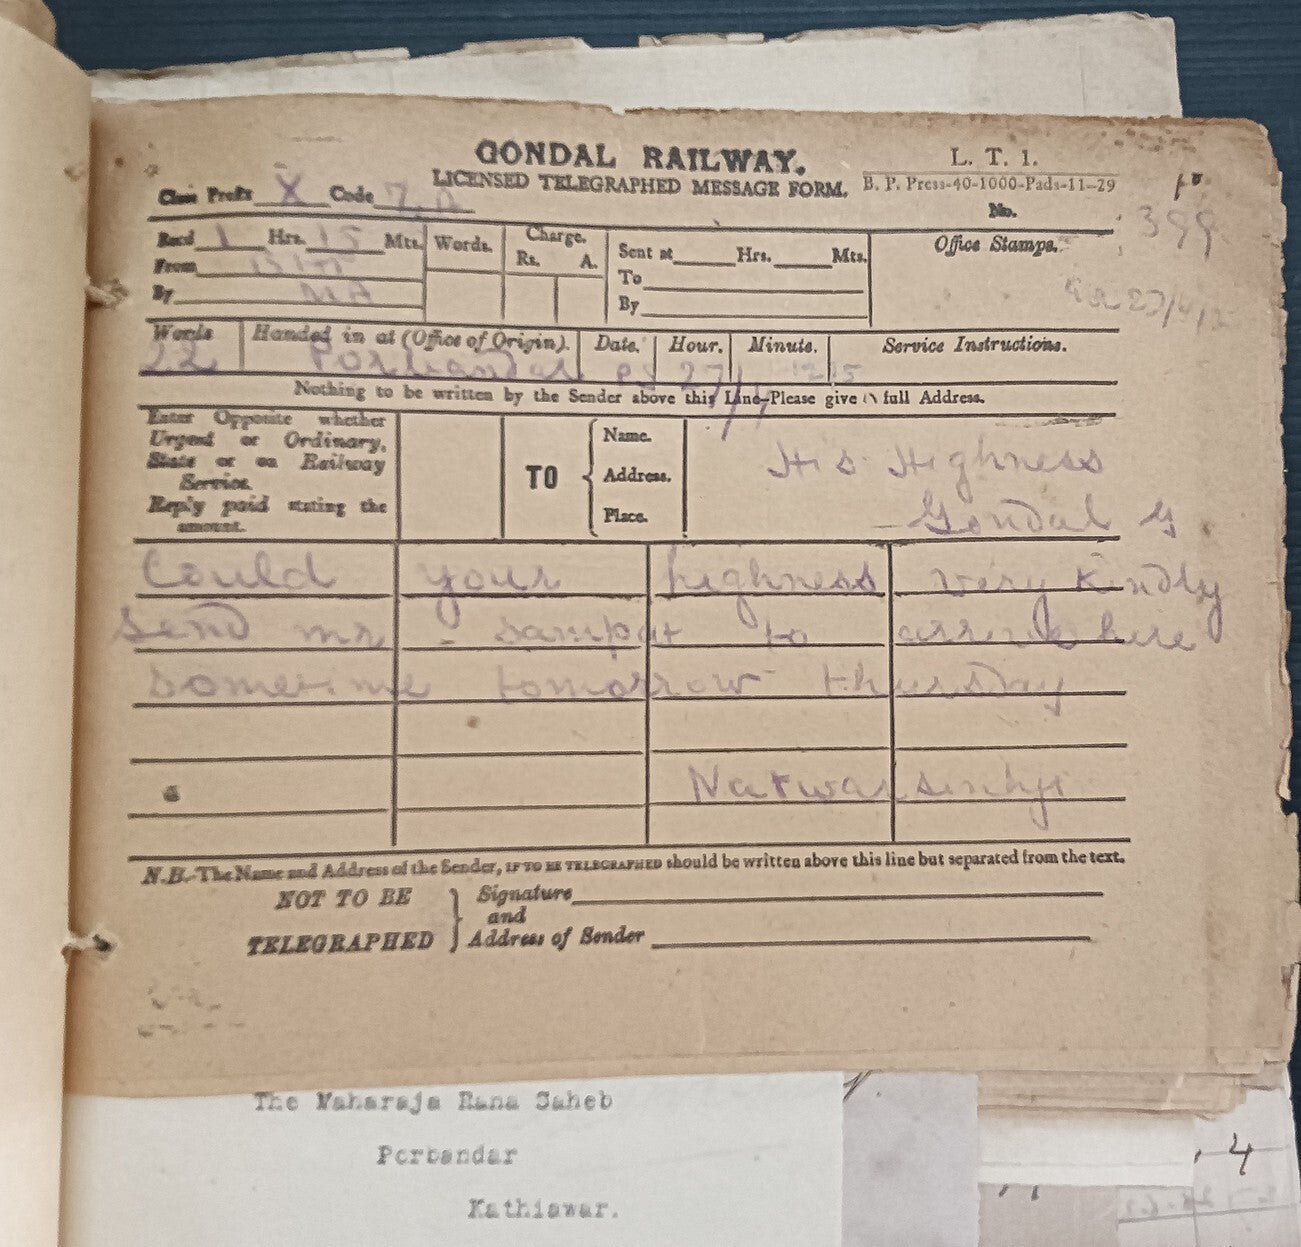 GONDAL RAILWAY.
LICENSED TELEGRAPHED MESSAGE FORM.
L. T. 1.
B. P. Press-40-1000-Pads-11-29
Class Prefix X Code
No. 399
Recd 1 Hrs. 15 Mts.
From
By MA
Words.
Charge.
Rs. A.
Sent at Hrs. Mts.
To
By
Office Stamps.
Words Handed in at (Office of Origin). Date. Hour. Minute. Service Instructions.
22 Porbandar 27/4 12 15
Nothing to be written by the Sender above this Line-Please give full Address.
Enter Opposite whether
Urgent or Ordinary,
State or on Railway
Service.
Reply paid stating the
amount.
TO
Name.
Address.
Place.
His Highness
Gondal
Could your highness very kindly
send mr - sampat to arrive here
sometime tomorrow thursday
Natwarsinhji
N.B.-The Name and Address of the Sender, IF TO BE TELEGRAPHED should be written above this line but separated from the text.
NOT TO BE
TELEGRAPHED
Signature
and
Address of Sender
The Maharaja Rana Saheb
Porbandar
Kathiawar.
4